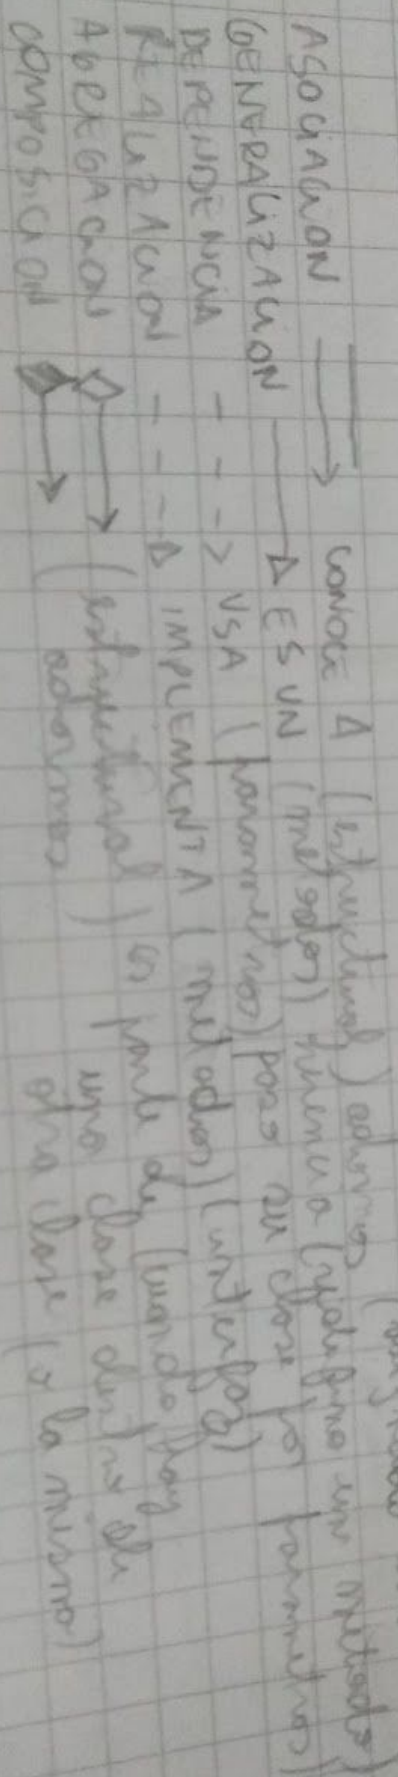 ASOCIACION CONOCE A (estructural) adornos
GENERALIZACION ES UN (metodos) herencia (redefino un metodo)
DEPENDENCIA USA (parametros) paso su clase por parametros
REALIZACION IMPLEMENTA (metodos) (interfaz)
AGREGACION (estructural) es parte de (cuando hay
COMPOSICION adornos una clase dentro de
otra clase (o la misma)